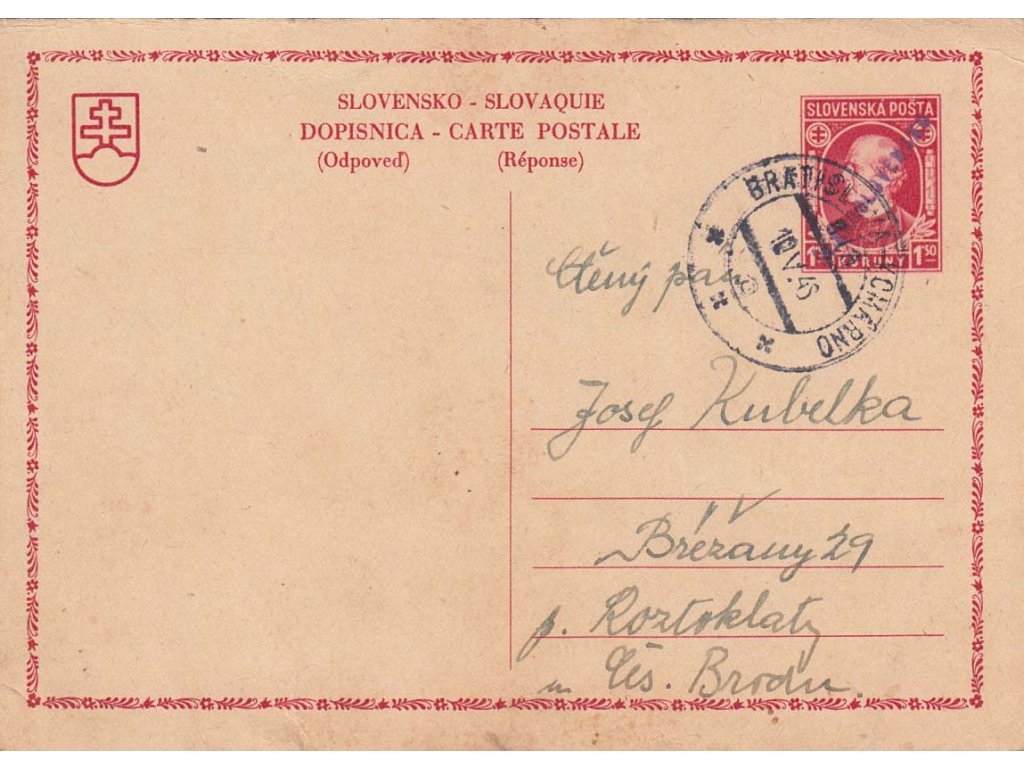 SLOVENSKO - SLOVAQUIE
DOPISNICA - CARTE POSTALE
(Odpoveď) (Réponse)
SLOVENSKÁ POŠTA
KORUNY 1·50
BRATISLAVA - KOMÁRNO
10.V.46
Ctěný pan
Josef Kubelka
Břežany 29
p. Roztoklaty
u Čes. Brodu.